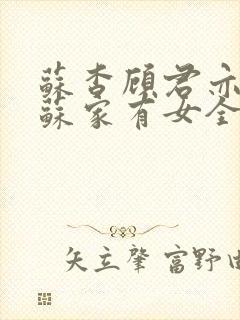 蘇杏顾君亦
蘇家有女全
矢立肇 富野由